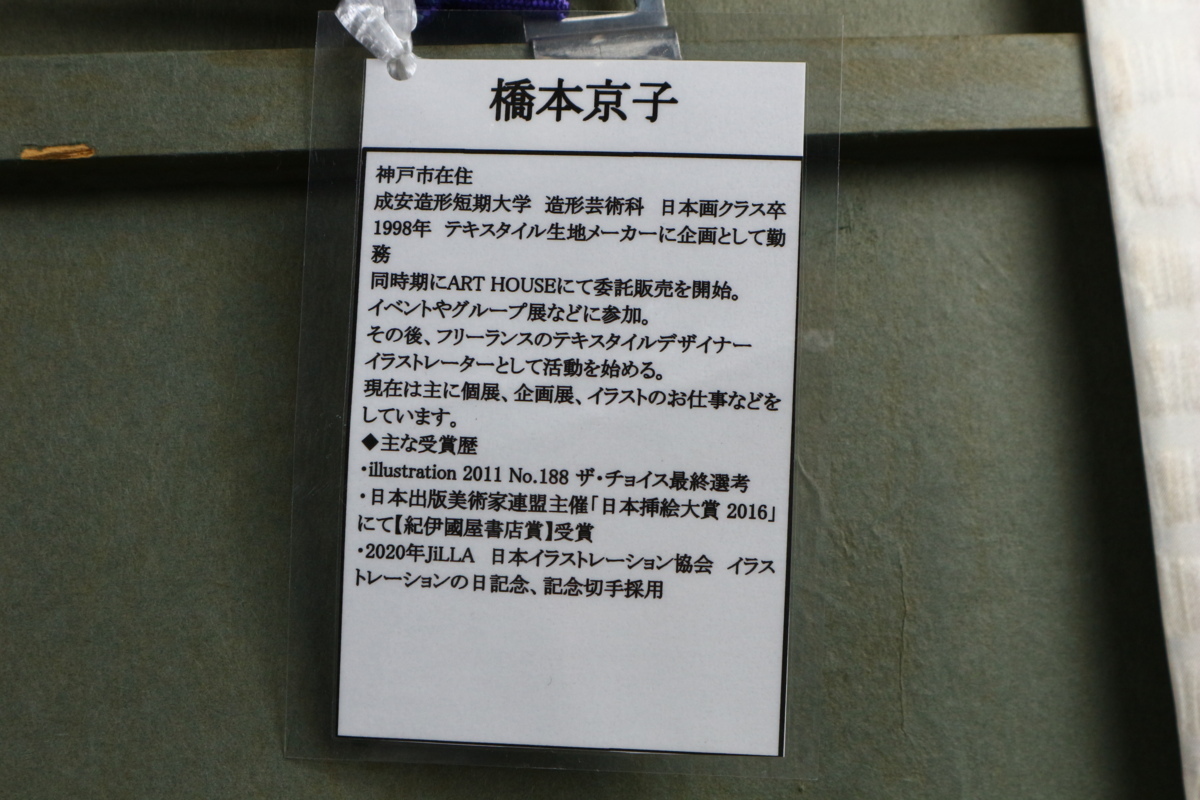 橋本京子
神戸市在住
成安造形短期大学　造形芸術科　日本画クラス卒
1998年　テキスタイル生地メーカーに企画として勤
務
同時期にART HOUSEにて委託販売を開始。
イベントやグループ展などに参加。
その後、フリーランスのテキスタイルデザイナー
イラストレーターとして活動を始める。
現在は主に個展、企画展、イラストのお仕事などを
しています。
◆主な受賞歴
・illustration 2011 No.188 ザ・チョイス最終選考
・日本出版美術家連盟主催「日本挿絵大賞 2016」
にて【紀伊國屋書店賞】受賞
・2020年JiLLA　日本イラストレーション協会　イラス
トレーションの日記念、記念切手採用